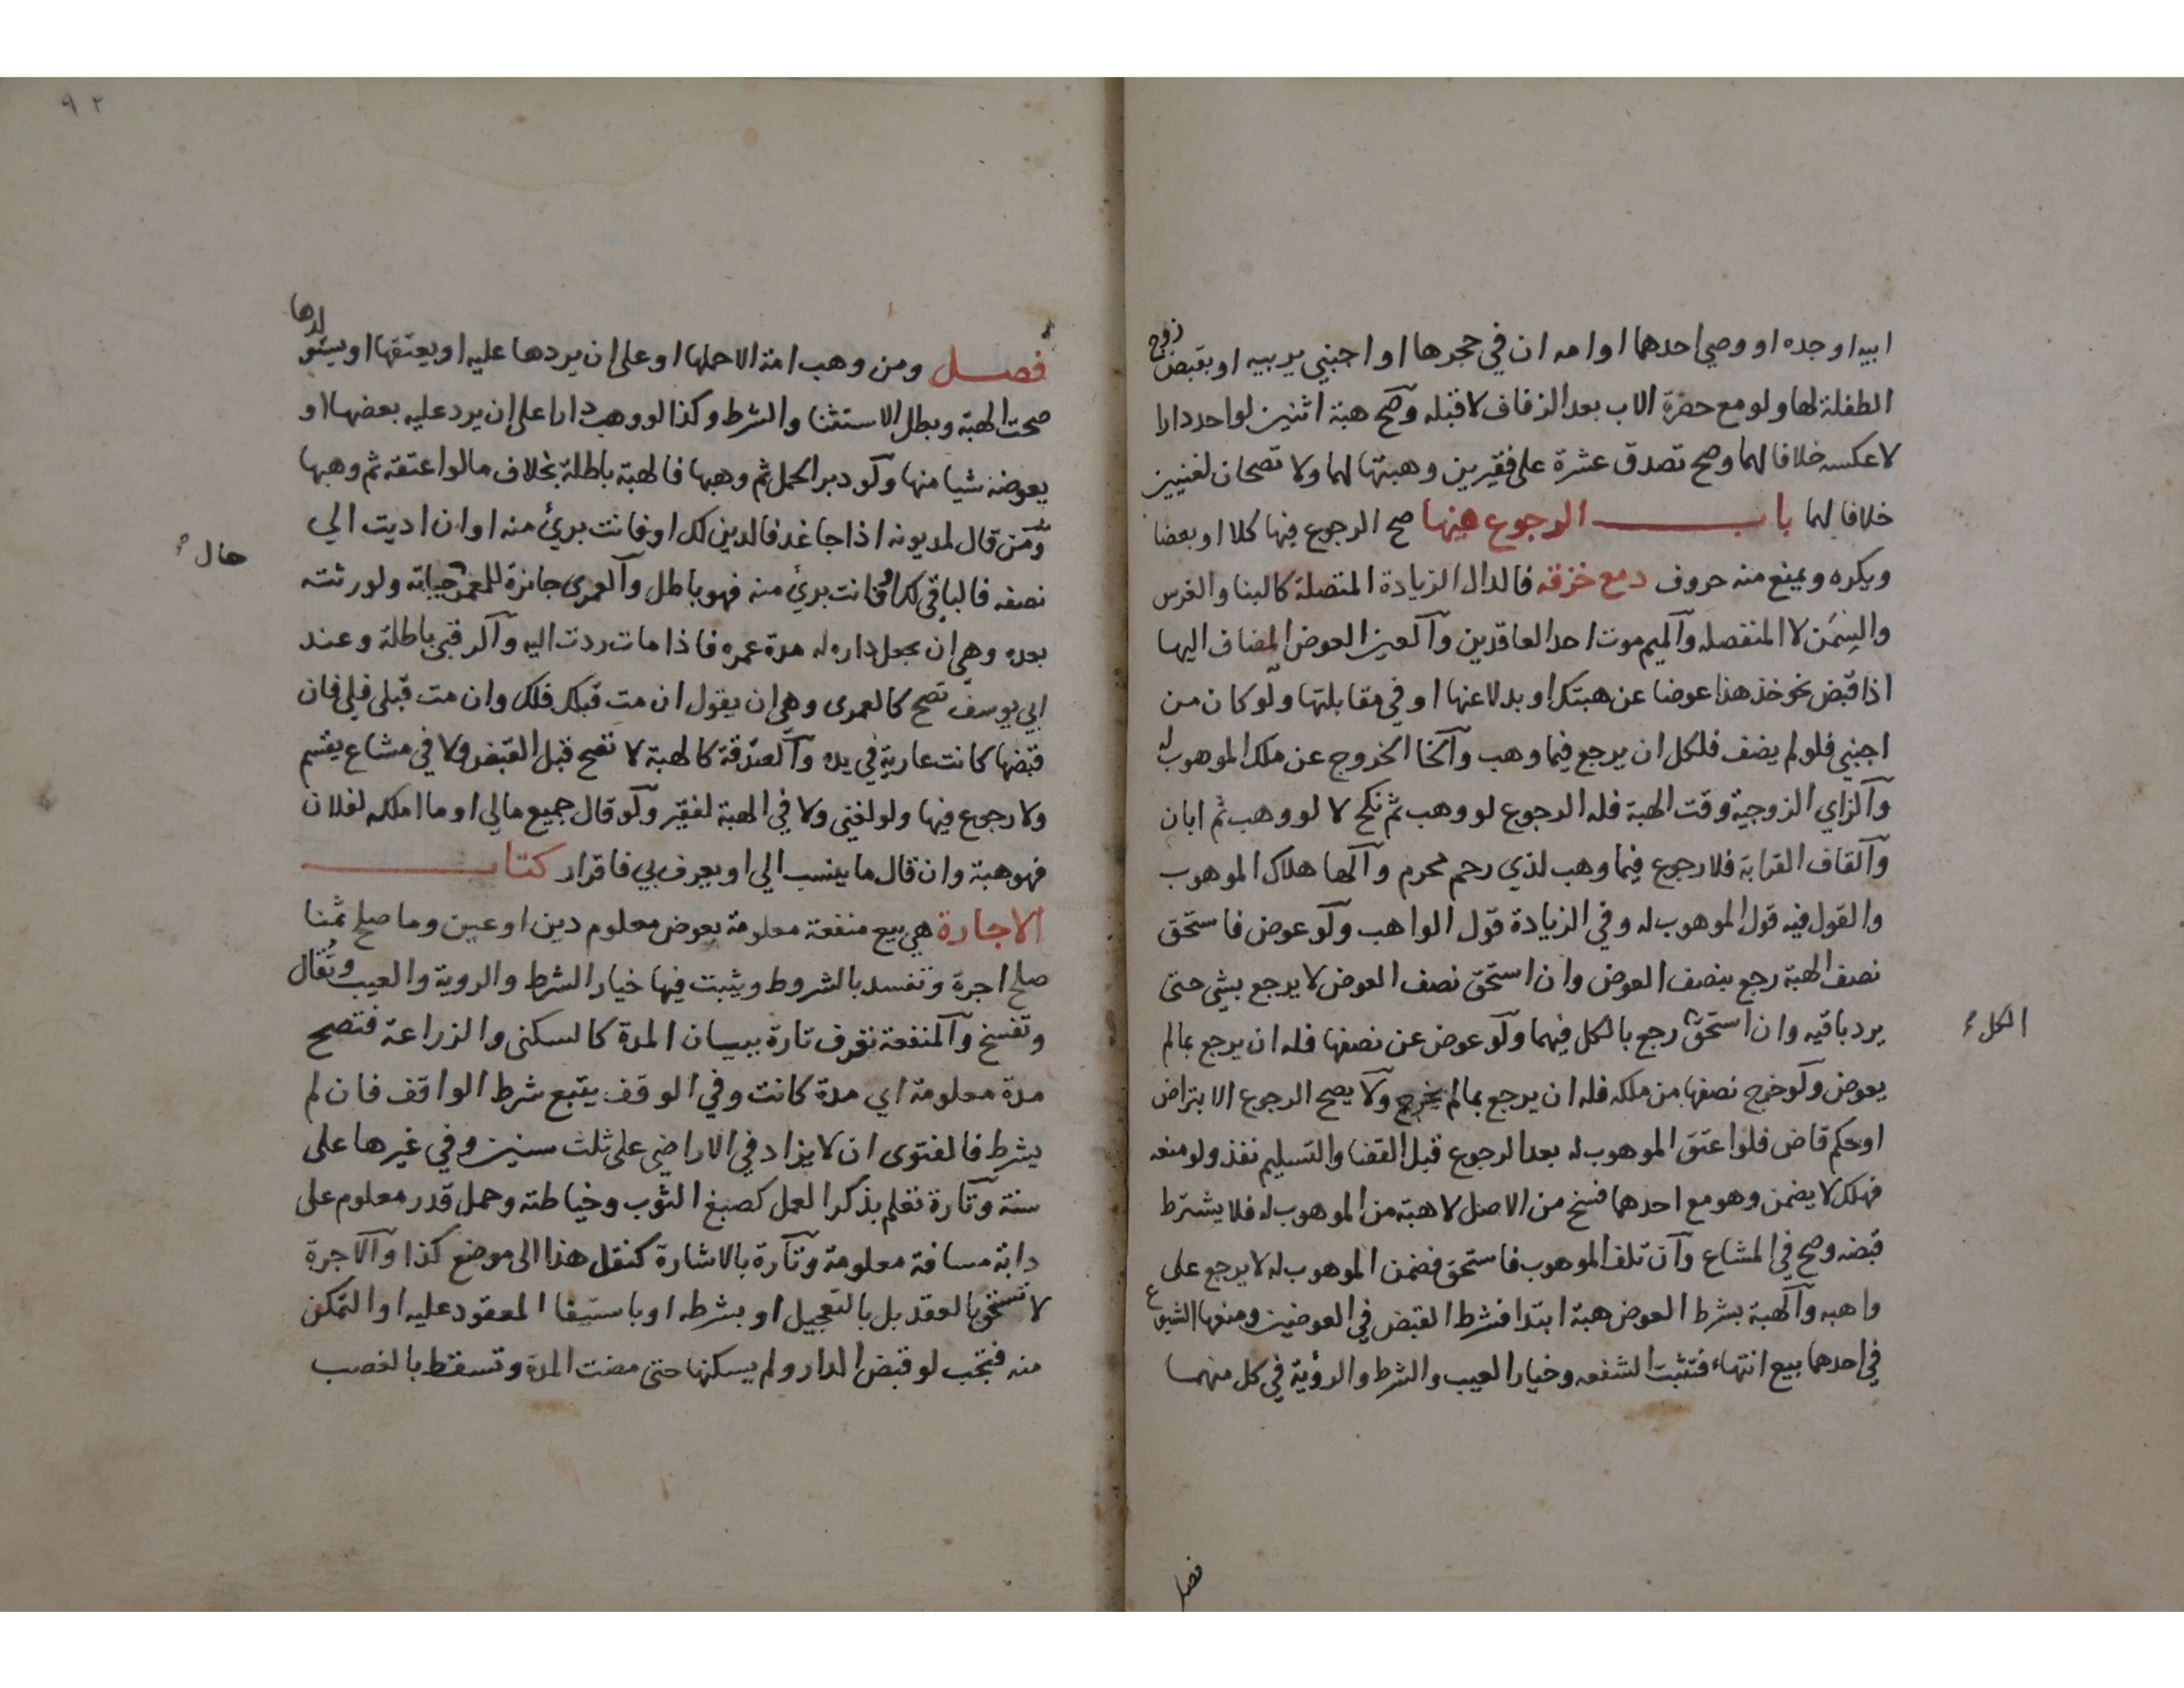 ابيه او جده او وصي احدهما او امه ان في حجرها او اجنبي يربيه او بقبض زوج
الطفلة لها ولو مع حضرة الاب بعد الزفاف لا قبله وصح هبة اثنين لواحد دارا
لا عكسه خلافا لهما وصح تصدق عشرة على فقيرين وهبتها لهما ولا تصحان لغنيين
خلافا لهما باب الرجوع فيها صح الرجوع فيها كلا او بعضا
ويكره ويمنع منه حروف دمع خزقه فالدال الزيادة المتصلة كالبنا والغرس
والسِمَن لا المنفصله والميم موت احد العاقدين والعين العوض المضاف اليها
اذا قبض نحو خذ هذا عوضا عن هبتك او بدلا عنها او في مقابلتها ولو كان من
اجنبي فلو لم يضف فلكل ان يرجع فيما وهب والخا الخروج عن ملك الموهوب له
والزاي الزوجية وقت الهبة فله الرجوع لو وهب ثم نكح لا لو وهب ثم ابان
والقاف القرابة فلا رجوع فيما وهب لذي رحم محرم والها هلاك الموهوب
والقول فيه قول الموهوب له وفي الزيادة قول الواهب ولو عوض فاستحق
نصف الهبة رجع بنصف العوض وان استحق نصف العوض لا يرجع بشي حتى
يرد باقيه وان استحق رجع بالكل فيهما ولو عوض عن نصفها فله ان يرجع بما لم
الكل
يعوض ولو خرج نصفها من ملكه فله ان يرجع بما لم يخرج ولا يصح الرجوع الا بتراض
او حكم قاض فلو اعتق الموهوب له بعد الرجوع قبل القضا والتسليم نفذ ولو منعه
فهلك لا يضمن وهو مع احدهما فسخ من الاصل لا هبة من الموهوب له فلا يشترط
قبضه وصح في المشاع وان تلف الموهوب فاستحق فضمن الموهوب له لا يرجع على
واهبه والهبة بشرط العوض هبة ابتدا فشرط القبض في العوضين ومنعها الشيوع
في احدهما بيع انتهاء فتثبت الشفعه وخيار العيب والشرط والرؤية في كل منهما
فصل
٩٢
فصل ومن وهب امة الا حملها او على ان يردها عليه او يعتقها او يستولدها
صحت الهبة وبطل الاستثنا والشرط وكذا لو وهب دارا على ان يرد عليه بعضها او
يعوضه شيا منها ولو دبر الحمل ثم وهبها فالهبة باطلة بخلاف ما لو اعتقه ثم وهبها
ومن قال لمديونه اذا جا غد فالدين لك او فانت برئ منه او ان اديت الي
نصفه فالباقي لك او فانت برئ منه فهو باطل والعمرى جائزة للمعمر حياته ولورثته
حال
بعده وهي ان يجعل داره له مدة عمره فاذا مات ردت اليه والرقبى باطلة وعند
ابي يوسف تصح كالعمرى وهي ان يقول ان مت قبلك فلك وان مت قبلي فلي فان
قبضها كانت عارية في يده والصدقة كالهبة لا تصح قبل القبض ولا في مشاع يقسم
ولا رجوع فيها ولو لغني ولا في الهبة لفقير ولو قال جميع مالي او ما املكه لفلان
فهو هبة وان قال ما ينسب الي او يعرف بي فاقرار كتاب
الاجارة هي بيع منفعة معلومة بعوض معلوم دين او عين وما صلح ثمنا
صلح اجرة وتفسد بالشروط ويثبت فيها خيار الشرط والروية والعيب وتُقال
وتفسخ والمنفعة تعرف تارة ببيان المدة كالسكنى والزراعة فتصح
مدة معلومة اي مدة كانت وفي الوقف يتبع شرط الواقف فان لم
يشرط فالفتوى ان لا يزاد في الاراضي على ثلث سنين وفي غيرها على
سنة وتارة تعلم بذكر العمل كصبغ الثوب وخياطته وحمل قدر معلوم على
دابة مسافة معلومة وتارة بالاشارة كنقل هذا الى موضع كذا والاجرة
لا تستحق بالعقد بل بالتعجيل او بشرطه او باستيفا المعقود عليه او التمكن
منه فتجب لو قبض الدار ولم يسكنها حتى مضت المدة وتسقط بالغصب